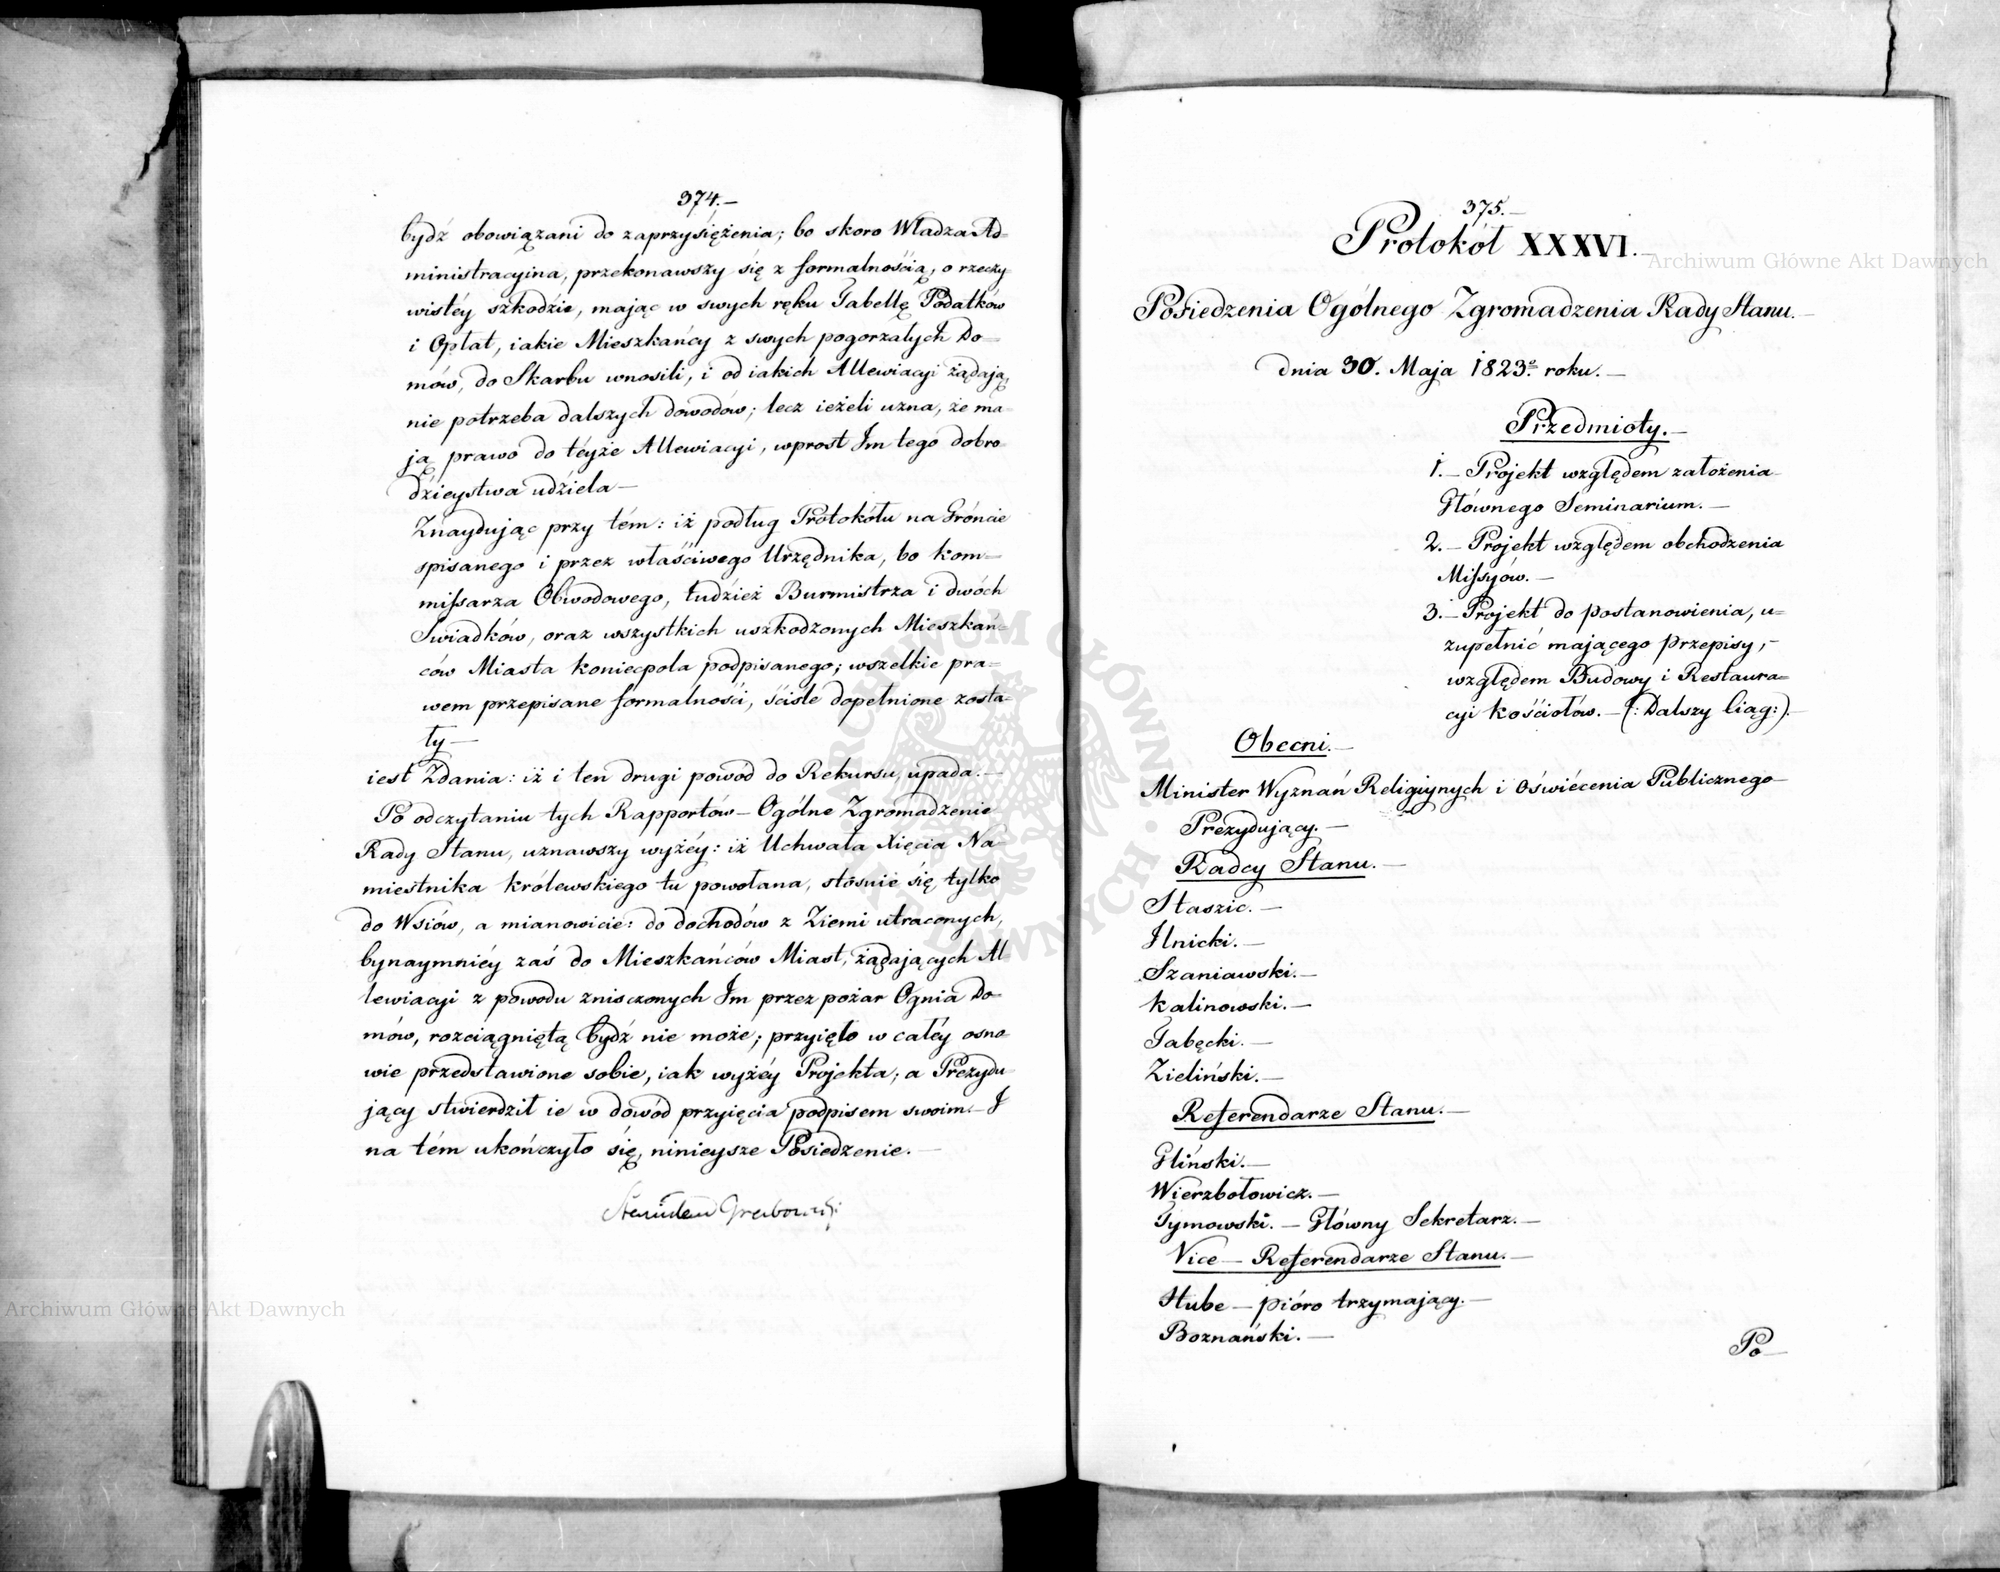 374.—
bydź obowiązani do zaprzysiężenia; bo skoro Władza Ad=
ministracyina, przekonawszy się z formalnością, o rzeczy
wistéy szkodzie, mając w swych ręku Tabellę Podatków
i Opłat, iakie Mieszkańcy z swych pogorzałych Do=
mów, do Skarbu wnosili, i od iakich Allewiacyi żądają,
nie potrzeba dalszych dowodów; lecz ieżeli uzna, że ma=
ją prawo do téyże Allewiacyi, wprost Im tego dobro
dzieystwa udziela—
Znaydując przy tém: iż podług Protokółu na Gróncie
spisanego i przez właściwego Urzędnika, bo kom=
missarza Obwodowego, tudzież Burmistrza i dwóch
Swiadków, oraz wszystkich uszkodzonych Mieszkań=
ców Miasta koniecpola podpisanego; wszelkie pra=
wem przepisane formalności, ściśle dopełnione zosta=
ły—
iest Zdania: iż i ten drugi powód do Rekursu, upada.—
Po odczytaniu tych Rapportów— Ogólne Zgromadzenie
Rady Stanu, uznawszy wyżéy: iż Uchwała Xięcia Na=
miestnika królewskiego tu powołana, stósuie się, tylko
do Wsiów, a mianowicie: do dochodów z Ziemi utraconych,
bynaymniéy zaś do Mieszkańców Miast, żądających Al
lewiacyi z powodu znisczonych Im przez pożar Ognia Do=
mów, rozciągniętą bydź nie może; przyięło w całéy osno
wie przedstawione sobie, iak wyżéy Projekta; a Prezydu=
jący stwierdził ie w dowód przyięcia podpisem swoim.— I
na tém ukończyło się, ninieysze Posiedzenie.—
Stanisław Grabowski
375.—
Protokół XXXVI.—
Posiedzenia Ogólnego Zgromadzenia Rady Stanu.—
dnia 30. Maja 1823º. roku.—
Przedmioty.—
1.— Projekt względem założenia
Głównego Seminarium.—
2.— Projekt względem obchodzenia
Missyów.—
3.— Projekt do postanowienia, u=
zupełnić mającego przepisy,—
względem Budowy i Restaura=
cyi kościołów.— (: Dalszy Ciąg:).—
Obecni.—
Minister Wyznań Religiynych i Oświécenia Publicznego
Prezydujący.—
Radcy Stanu.—
Staszic.—
Ilnicki.—
Szaniawski.—
Kalinowski.—
Gabęcki.—
Zieliński.—
Referendarze Stanu.—
Gliński.—
Wierzbołowicz.—
Tymowski.— Główny Sekretarz.—
Vice— Referendarze Stanu.—
Hube— pióro trzymający.—
Boznański.—
Po—
Archiwum Główne Akt Dawnych
Archiwum Główne Akt Dawnych
ARCHIWUM GŁÓWNE AKT DAWNYCH